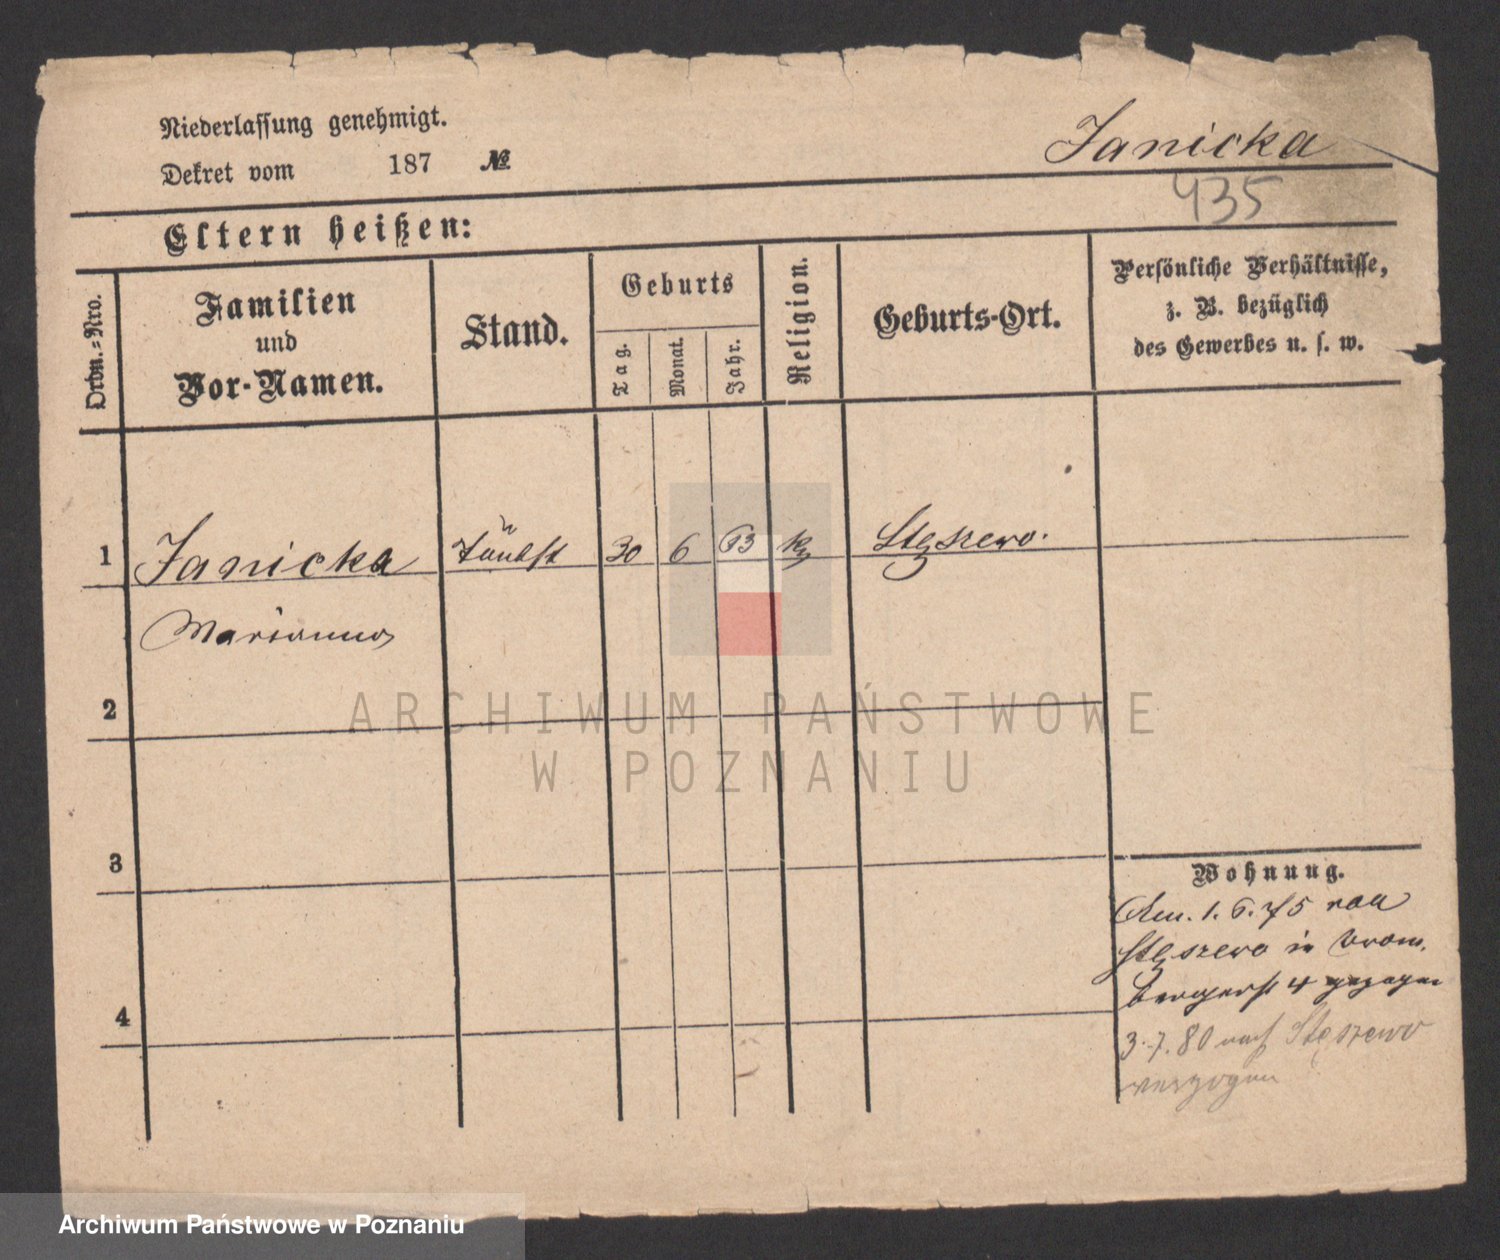 Niederlassung genehmigt.
Dekret vom 187 №
Janicka
435
Eltern heißen:
Ordn.-Nro.
Familien
und
Vor-Namen.
Stand.
Geburts
Tag.
Monat.
Jahr.
Religion.
Geburts-Ort.
Persönliche Verhältnisse,
z. B. bezüglich
des Gewerbes u. s. w.
1 Janicka 30 6 63 k Stęszewo.
Marianna
2
3
4
Wohnung.
Am. 1. 6. 75 von
Stęszewo in Brom.
bergerst 4 gezogen
3. 7. 80 nach Stęszewo
verzogen
ARCHIWUM PAŃSTWOWE
W POZNANIU
Archiwum Państwowe w Poznaniu